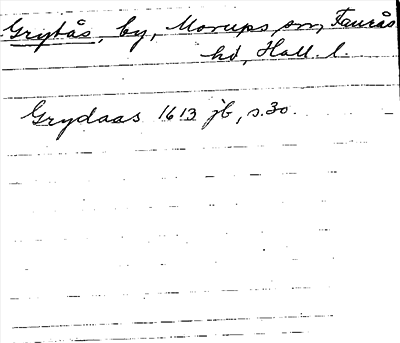 Grytås, by, Morups sn, Faurås
hd, Hall. l.
Grydaas 1613 jb, s. 30.